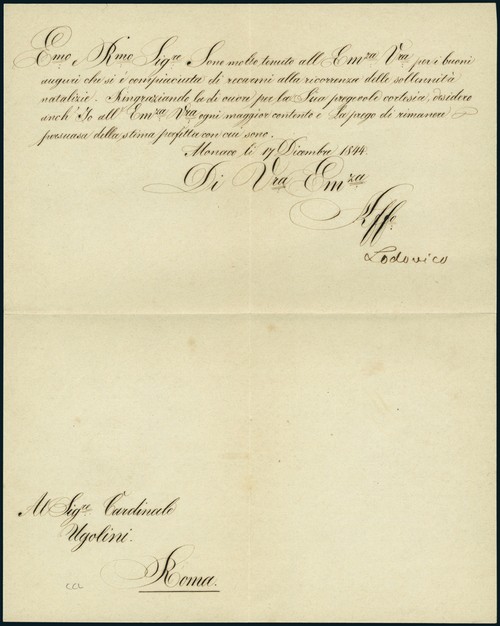 Emo e Rmo Sigre Sono molto tenuto all' Emza Vra per i buoni
auguri che si è compiaciuta di recarmi alla ricorrenza delle sollennità
natalizie. Ringraziandola di cuore per la Sua pregevole cortesia, desidero
anch' Io all' Emza Vra ogni maggior contento e La prego di rimanere
persuasa della stima perfetta con cui sono.
Monaco li 17 Dicembre 1844.
Di Vra Emza
Affo
Lodovico
Al Sigre Cardinale
Ugolini.
Roma.